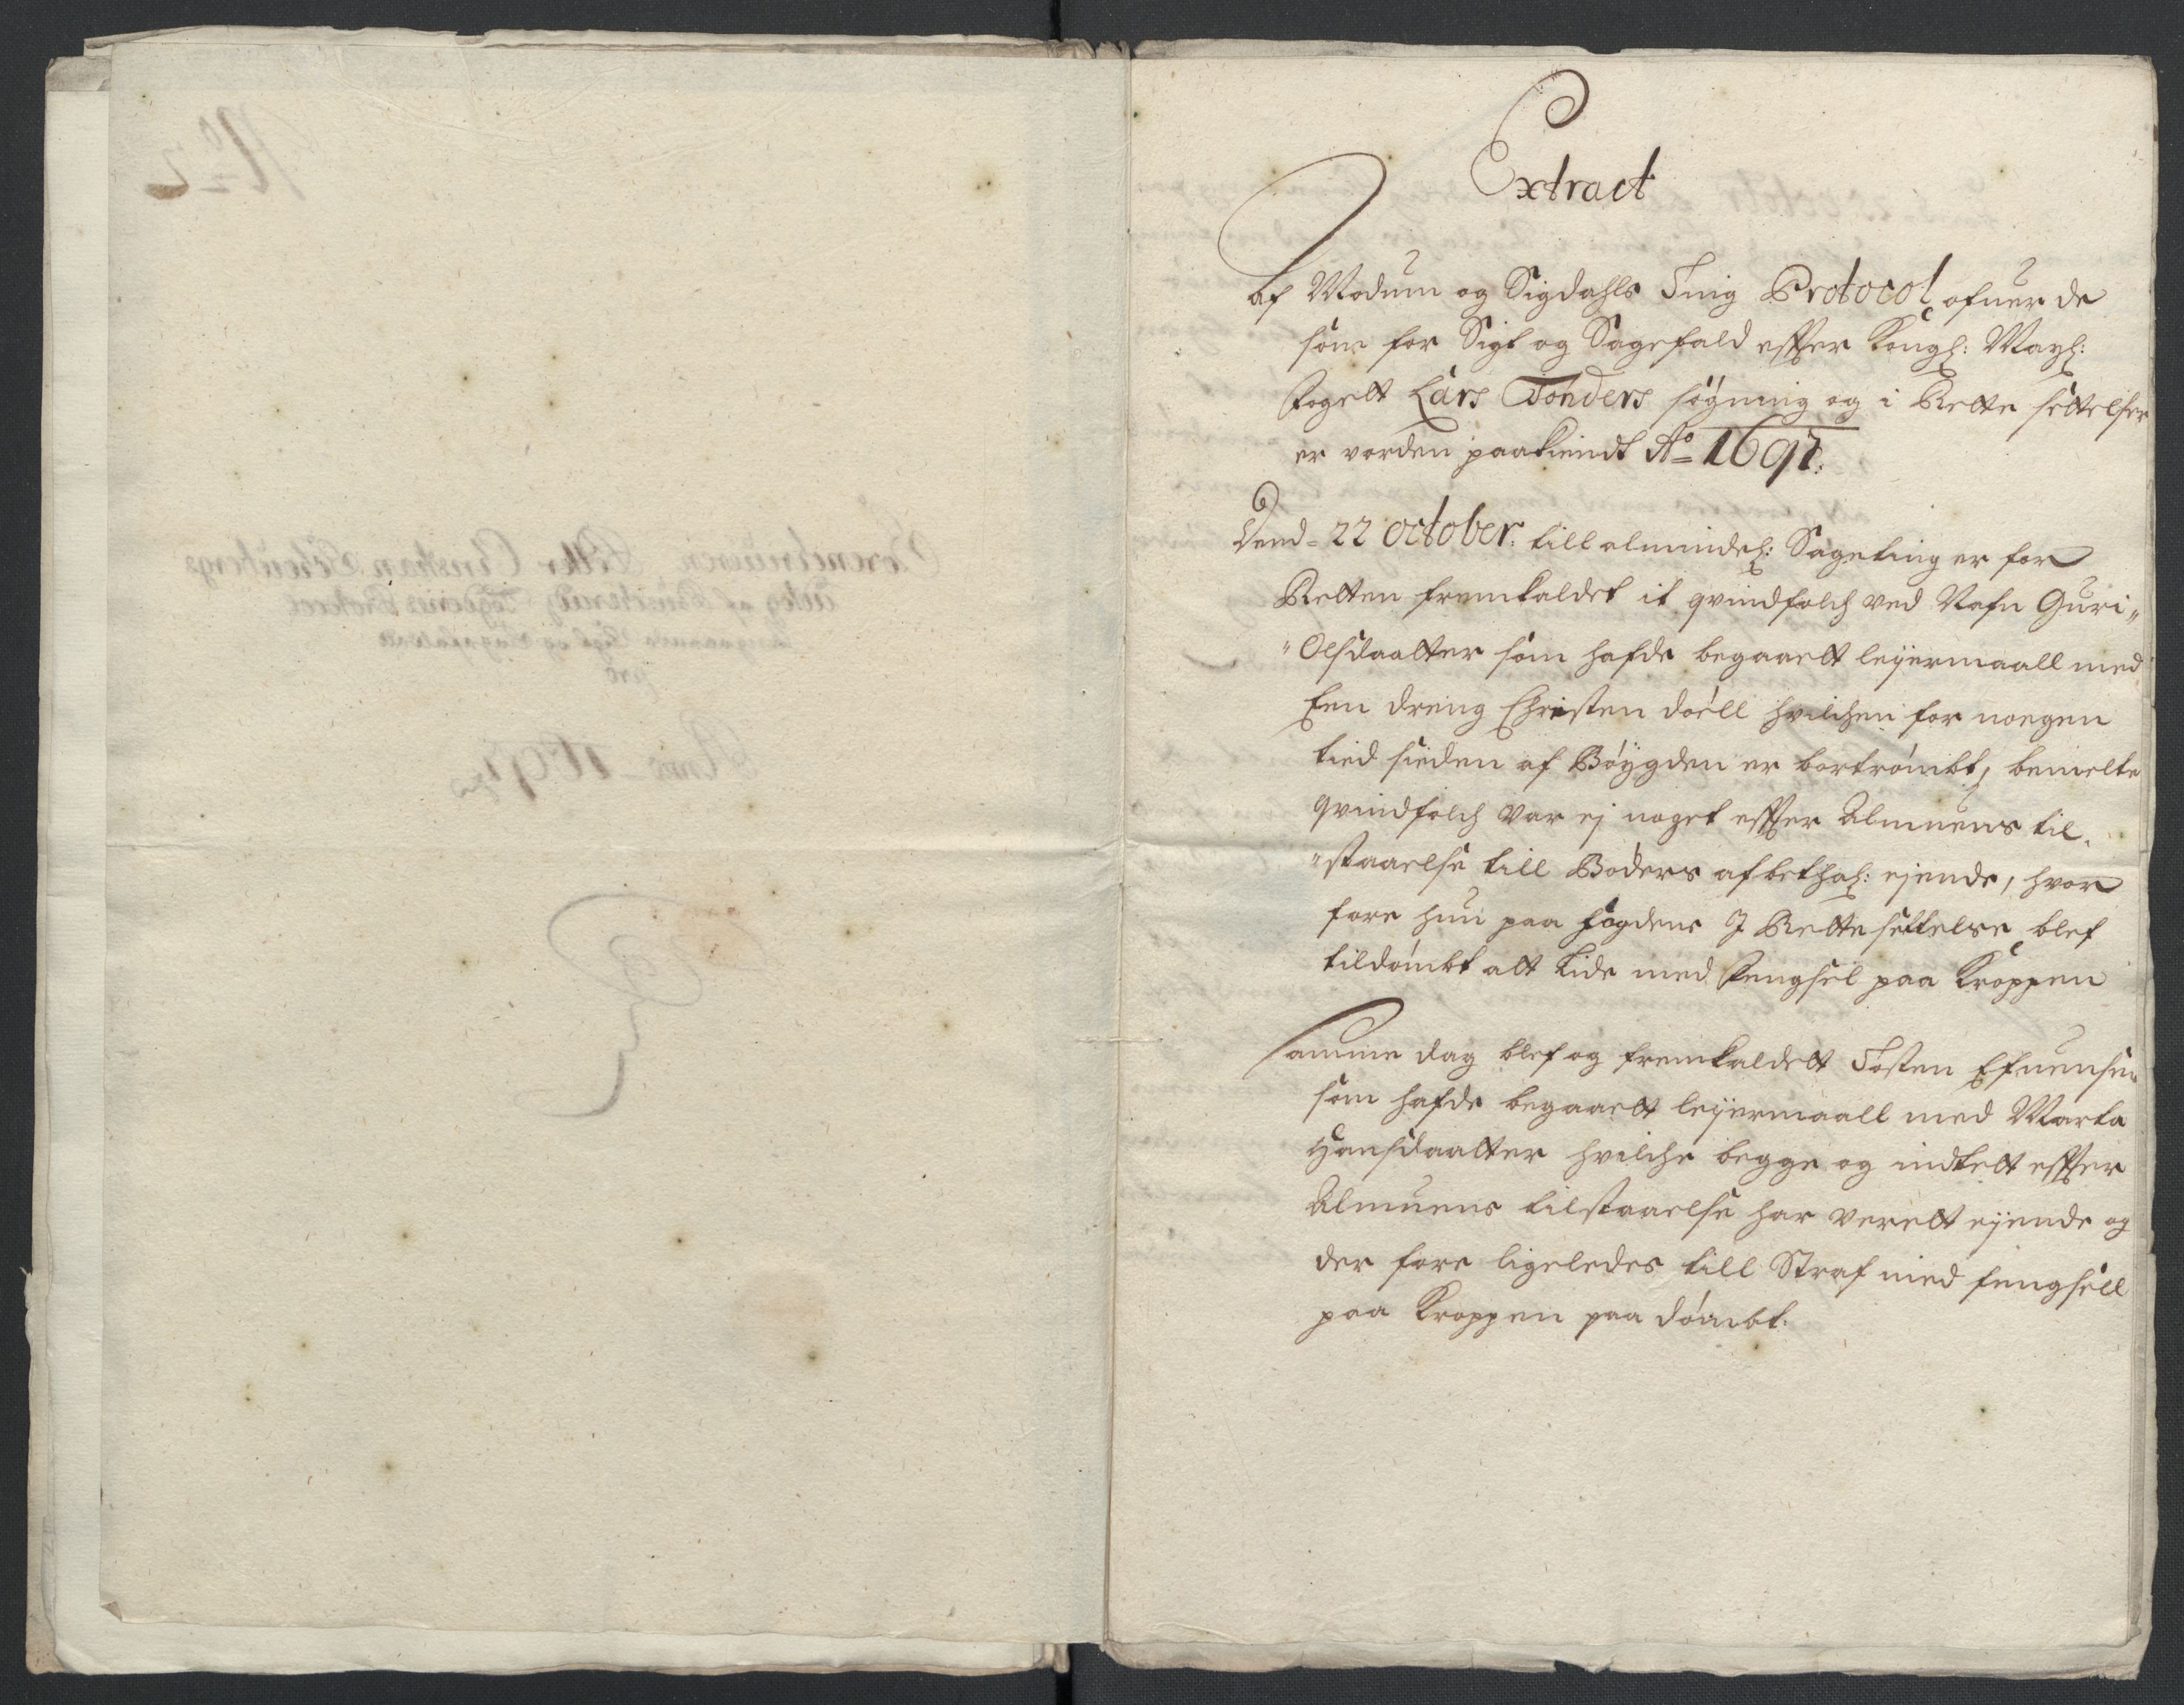 Extract
af Modum og Sigdahls Ting Protocol ofuer de
som for Sigt og Sagefald effter Kongl: Mayt:
Fogett Lars Tonders søgning og i Rette settelser
er vorden paakiendt Ao 1697:
Dend 22 october: till almindel: Sageting er for
Retten fremkaldet it qvindfolch ved Nafn Guri„
„Olsdaatter som hafde begaaett leyermaall med
Een dreng Christen doell hvilchen for noegen
tied sieden af Bøygden er bortrømbt, bemelte
qvindfolch var ej noget effter Almuens til„
„staaelse till Bøders afbethal: ejende, hvor
fore hun paa fogdens I Rettesettelse blef
tildømbt att lide med Fengsel paa Kroppen
Samme dag blef og fremkaldett Tosten Efuensen
som hafde begaaett leyermaall med Marta
Hansdaatter hvilche begge og indtett effter
Almuens tilstaaelse har verett eyende og
der fore ligeledes till Straf med fengsell
paa Kroppen paa dømbt.